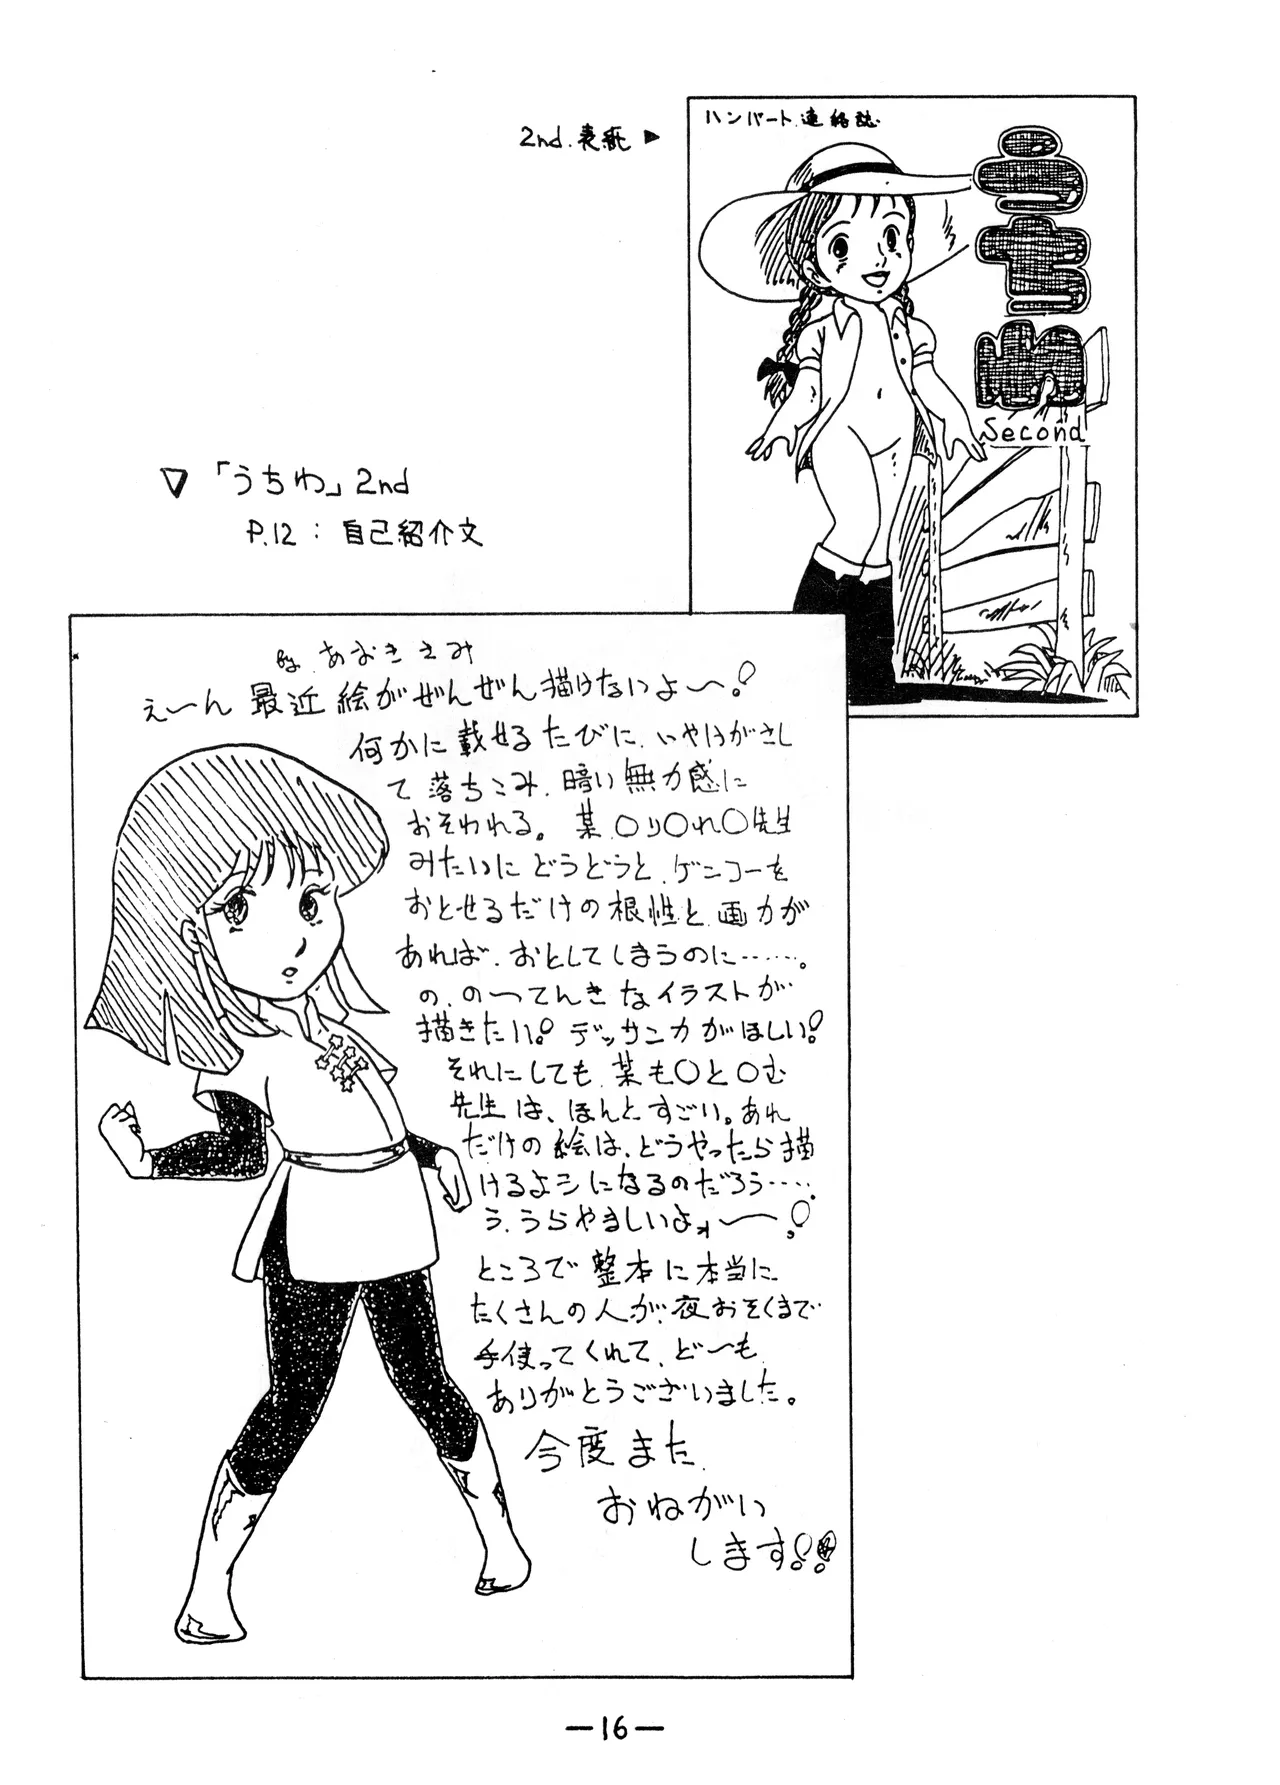 2nd.表紙 ▶
ハンバート連絡誌
うちわ
Second
▽ 「うちわ」2nd
P.12 : 自己紹介文
by. あおきえみ
え〜ん 最近 絵がぜんぜん描けないよ〜!
何かに載せるたびに、いやけがさし
て落ちこみ、暗い無力感に
おそわれる。某、〇り〇れ〇先生
みたいにどうどうと、ゲンコーを
おとせるだけの根性と、画力が
あれば、おとしてしまうのに……。
の、の一てんきなイラストが
描きたい! デッサン力がほしい!
それにしても、某も〇と〇む
先生は、ほんとすごい。あれ
だけの絵は、どうやったら描
けるよヲになるのだろう……
う、うらやましいよォ〜〜!
ところで整本に本当に
たくさんの人が、夜おそくまで
手使ってくれて、ど〜も
ありがとうございました。
今度また
おねがい
します!!
—16—